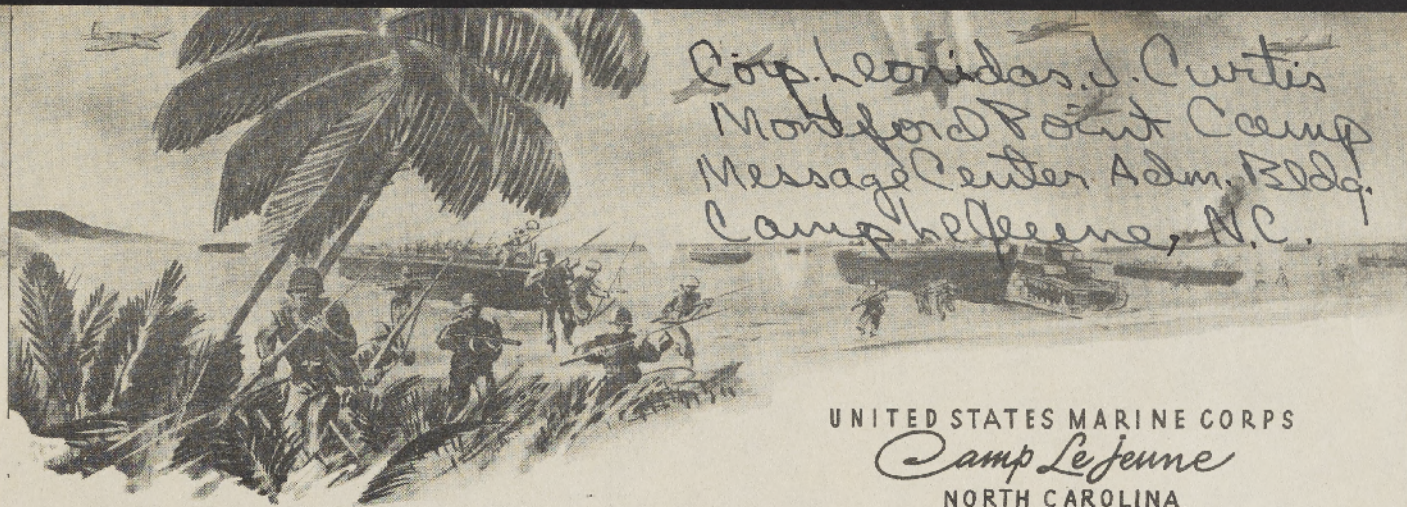 Corp. Leonidas. J. Curtis
Montford Point Camp
Message Center Adm. Bldg.
Camp LeJeune, N.C.
UNITED STATES MARINE CORPS
Camp Lejeune
NORTH CAROLINA